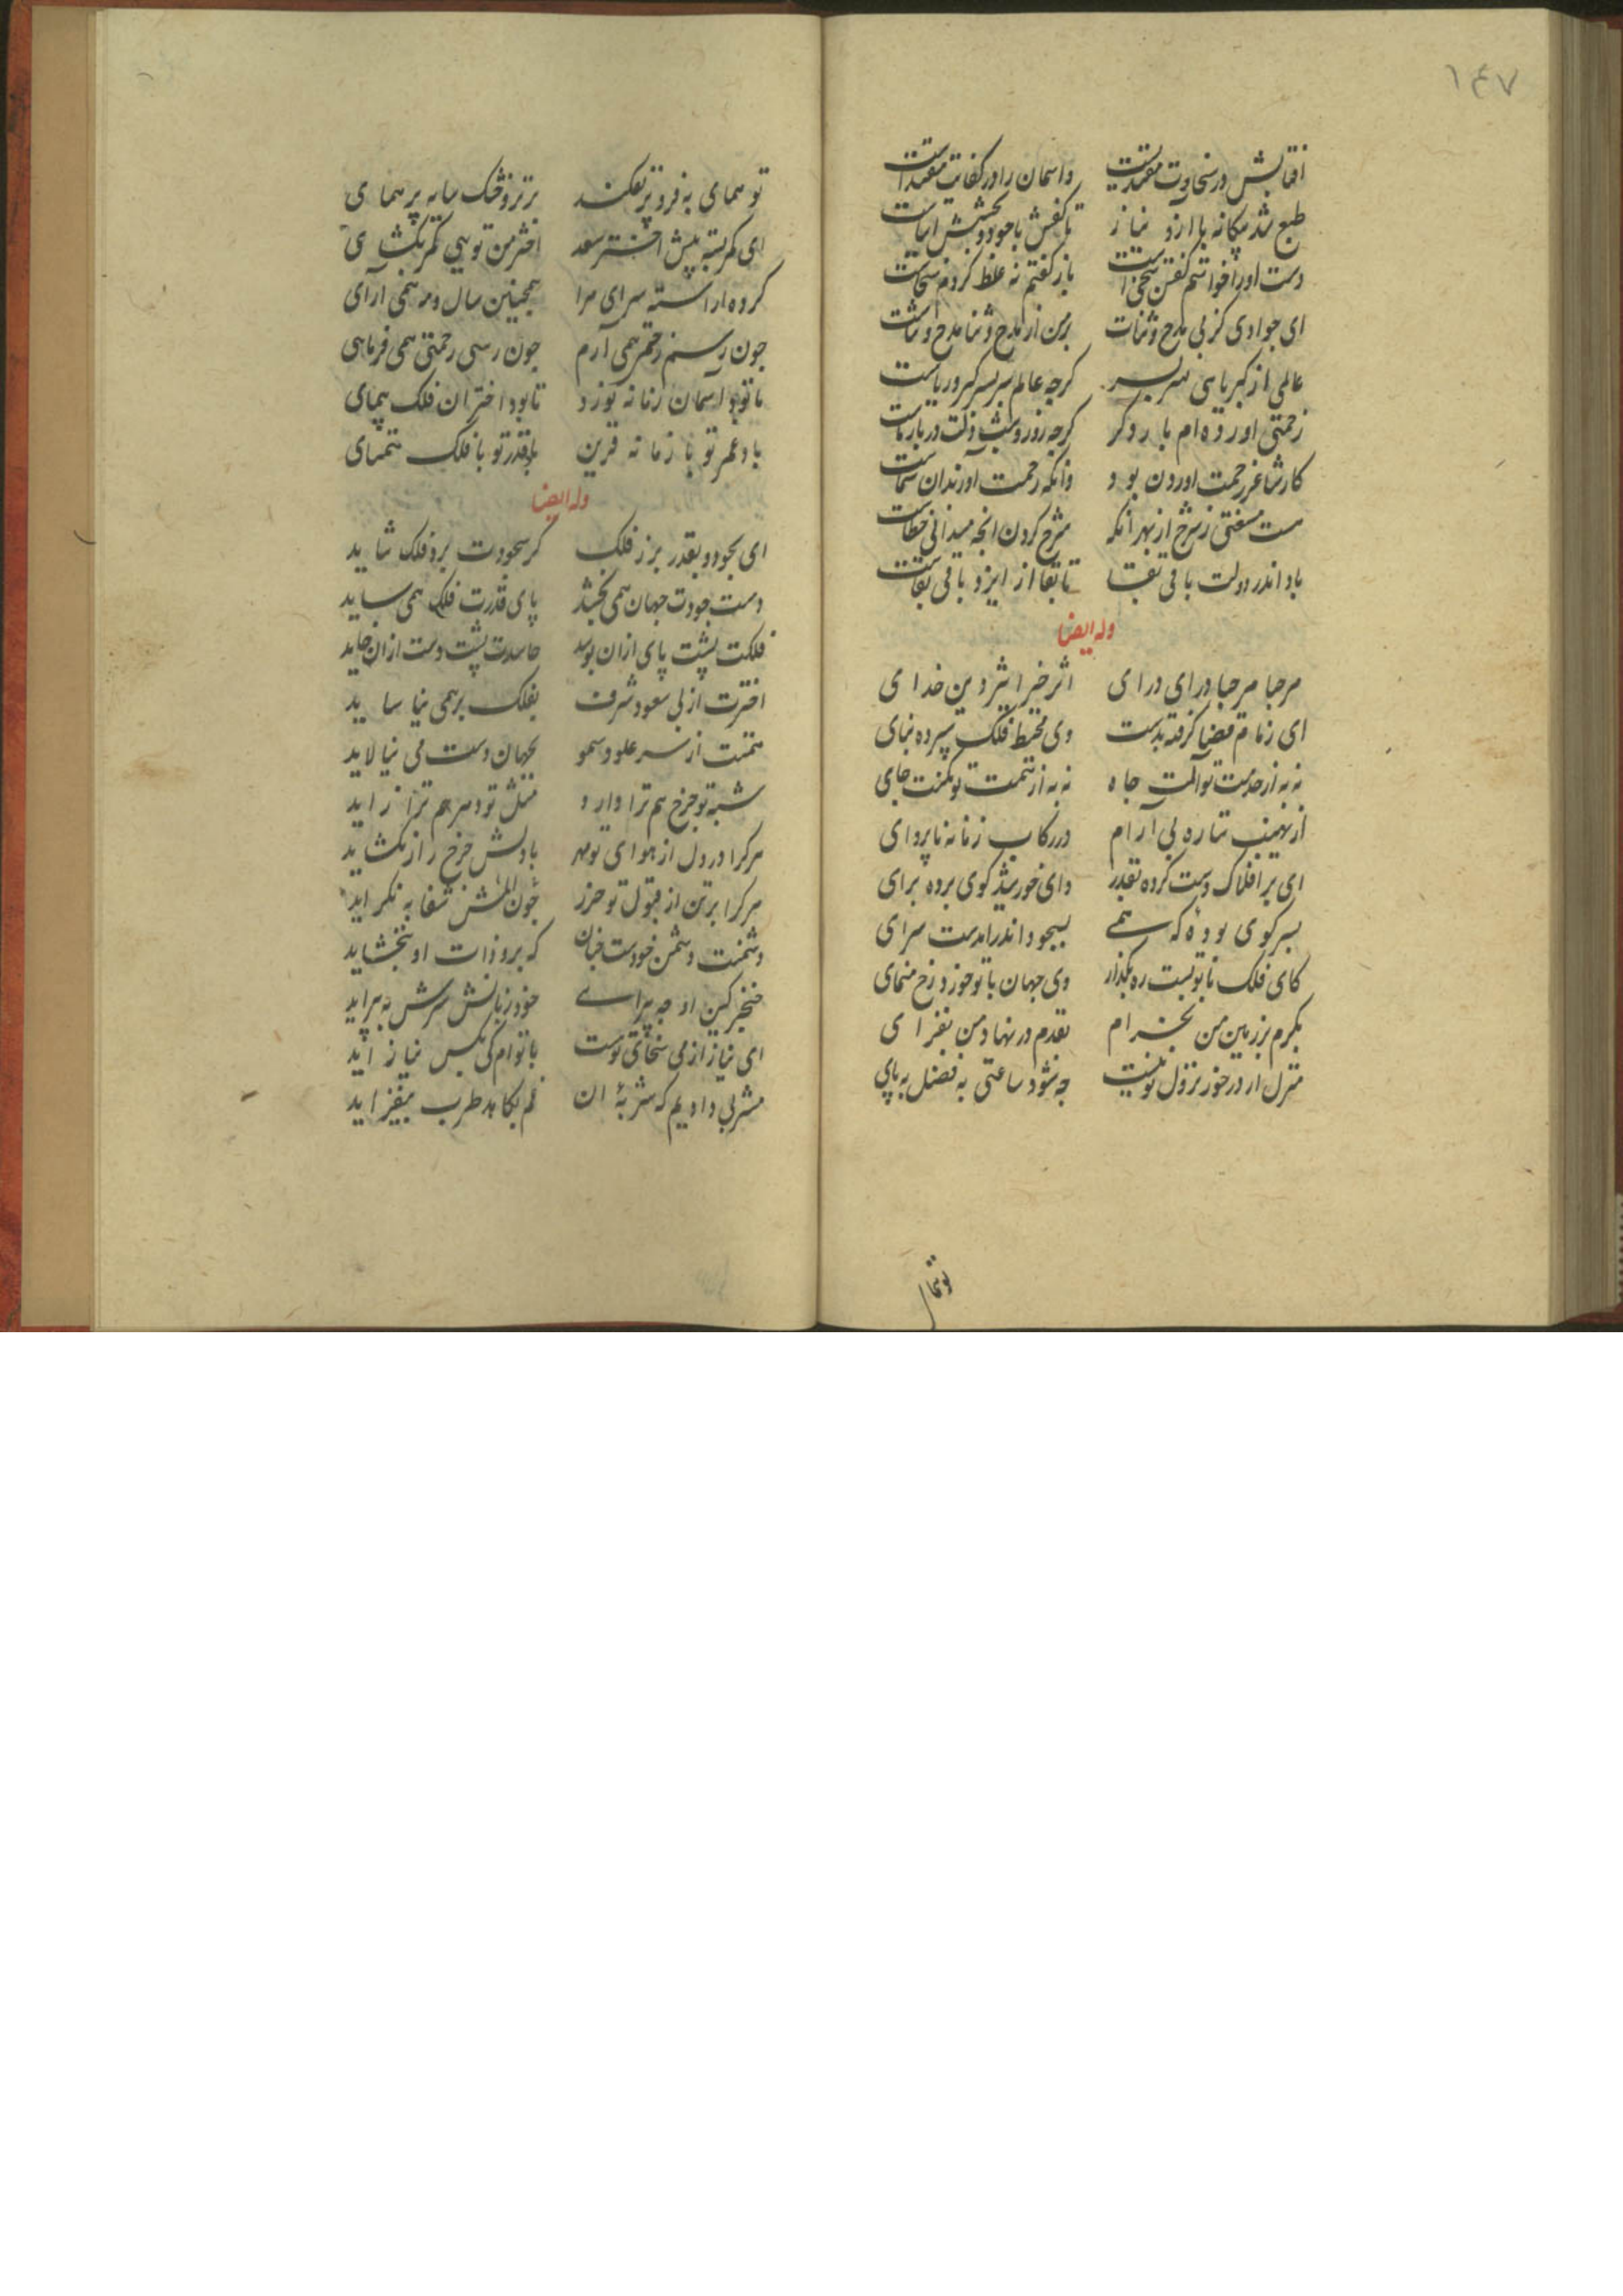 ١٤٧
افتابش در سخاوت مقتدیست واسمان را در کفایت مقتداست
طبع شد بیکانه با از و نیاز تا کفش با جود و بخشش اشناست
دست او را خواستم گفتن سخی است باز کفتم نه غلط کردم سخاست
ای جوادی کز پی مدح و ثنات بر من از مدح و ثنا مدح و ثناست
عالمی از کبریایی سر بسر کرچه عالم سر بسر کبر و ریاست
زحمتی اورده ام بار دکر کرچه روز و شب دلت در بار ماست
کار شاعر زحمت اوردن بود وانکه رحمت آورند آن شماست
هست مستغنی ز شرح از بهر انکه شرح کردن انچه میدانی خطاست
باد اندر دولت باقی بقا تا بقا از ایزد باقی بقاست
وله ایضا
مرحبا مرحبا درای درای اثر خیر اثیر دین خدای
ای زمام قضا کرفته بدست وی محیط فلک سپرده بپای
نه به از خدمت تو آلت جاه نه به از نعمت تو مکنت جای
از نهیبت ستاره بی آرام در رکاب زمانه ناپروای
ای بر افلاک دست کرده بقدر وای خورشید کوی برده برای
بسر کوی بوده که همی بسجود اندر امدست سرای
کای فلک با تو نیست ره بکذار وی جهان با تو خوز و رخ منمای
بکرم بر زمین من بخرام بقدم در نهاد من بفزای
منزل ار در خور نزول تو نیست چه شود ساعتی به فضل بپای
تو همای
تو همای به فر و پر نفکند برتر و خنک سایه پر همای
ای کمر بسته پیش اختر سعد اختر من تویی کمر بکشای
کرده اراسته سرای مرا همچنین سال و مه همی آرای
چون رسم زحمتی همی آرم چون رسی رحمتی همی فرمای
تا نبود آسمان زمانه نورد تا بود اختران فلک پیمای
باد عمر تو با زمانه قرین باد قدر تو با فلک همتای
وله ایضا
ای بجود و بقدر برز فلک کر سجودت برد فلک شاید
دست جودت جهان همی بخشد پای قدرت فلک همی ساید
فلکت پشت پای ازان بوسد حاسدت پشت دست ازان خاید
اخترت از پی سعود شرف بفلک بر همی نیاساید
همتت از سر علو و سمو بجهان دست می نیالاید
شبه تو چرخ هم ترا دارد مثل تو دهر هم ترا زاید
هرکرا در دل از هوای تو مهر با دلش چرخ راز نکشاید
هرکرا بر تن از قبول تو حرز چون المش شفا به نکراید
دشمنت دشمن خودست چنان که بر و ذات او نبخشاید
خنجر کین او چه پیراے خود زبانش سرش به پیراید
ای نیاز از می سخای تو مست با توام کی بکس نیاز آید
مشربی دادیم که شربهٔ ان غم بکاهد طرب بیفزاید